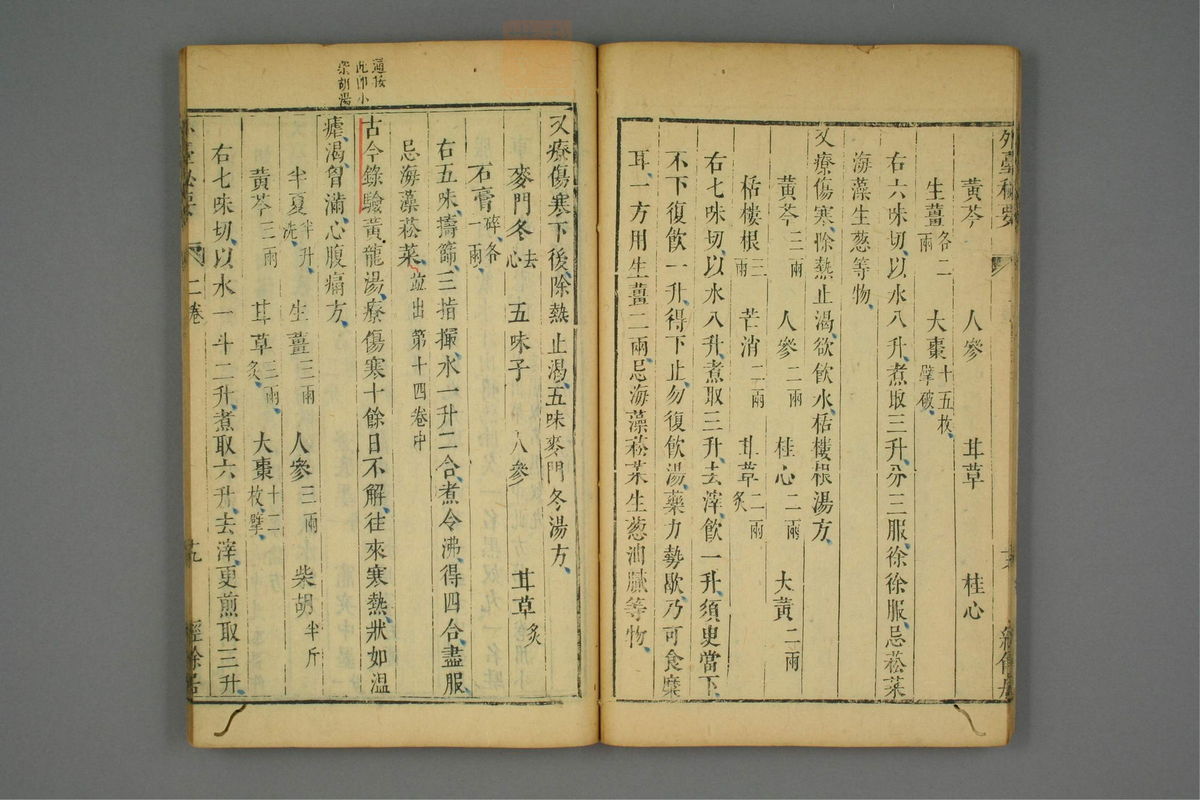 外臺秘要
黃芩 人參 甘草 桂心
生薑各二兩 大棗十五枚擘破
右六味切以水八升煮取三升分三服徐徐服忌菘菜
海藻生葱等物
又療傷寒除熱止渴欲飲水栝樓根湯方
黃芩三兩 人參二兩 桂心二兩 大黃二兩
栝樓根三兩 芒消二兩 甘草二兩炙
右七味切以水八升煮取三升去滓飲一升須臾當下
不下復飲一升得下止勿復飲湯藥力勢歇乃可食糜
耳一方用生薑二兩忌海藻菘菜生葱油膩等物
又療傷寒下後除熱止渴五味麥門冬湯方
麥門冬去心 五味子 人參 甘草炙
石膏碎各一兩
右五味擣篩三指撮水一升二合煮令沸得四合盡服
忌海藻菘菜並出第十四卷中
古今錄驗黃龍湯療傷寒十餘日不解往來寒熱狀如溫
瘧渴胷滿心腹痛方
半夏半升洗 生薑三兩 人參三兩 柴胡半斤
黃芩三兩 甘草三兩炙 大棗十二枚擘
右七味切以水一斗二升煮取六升去滓更煎取三升
二卷
經餘居
此即小
柴胡湯